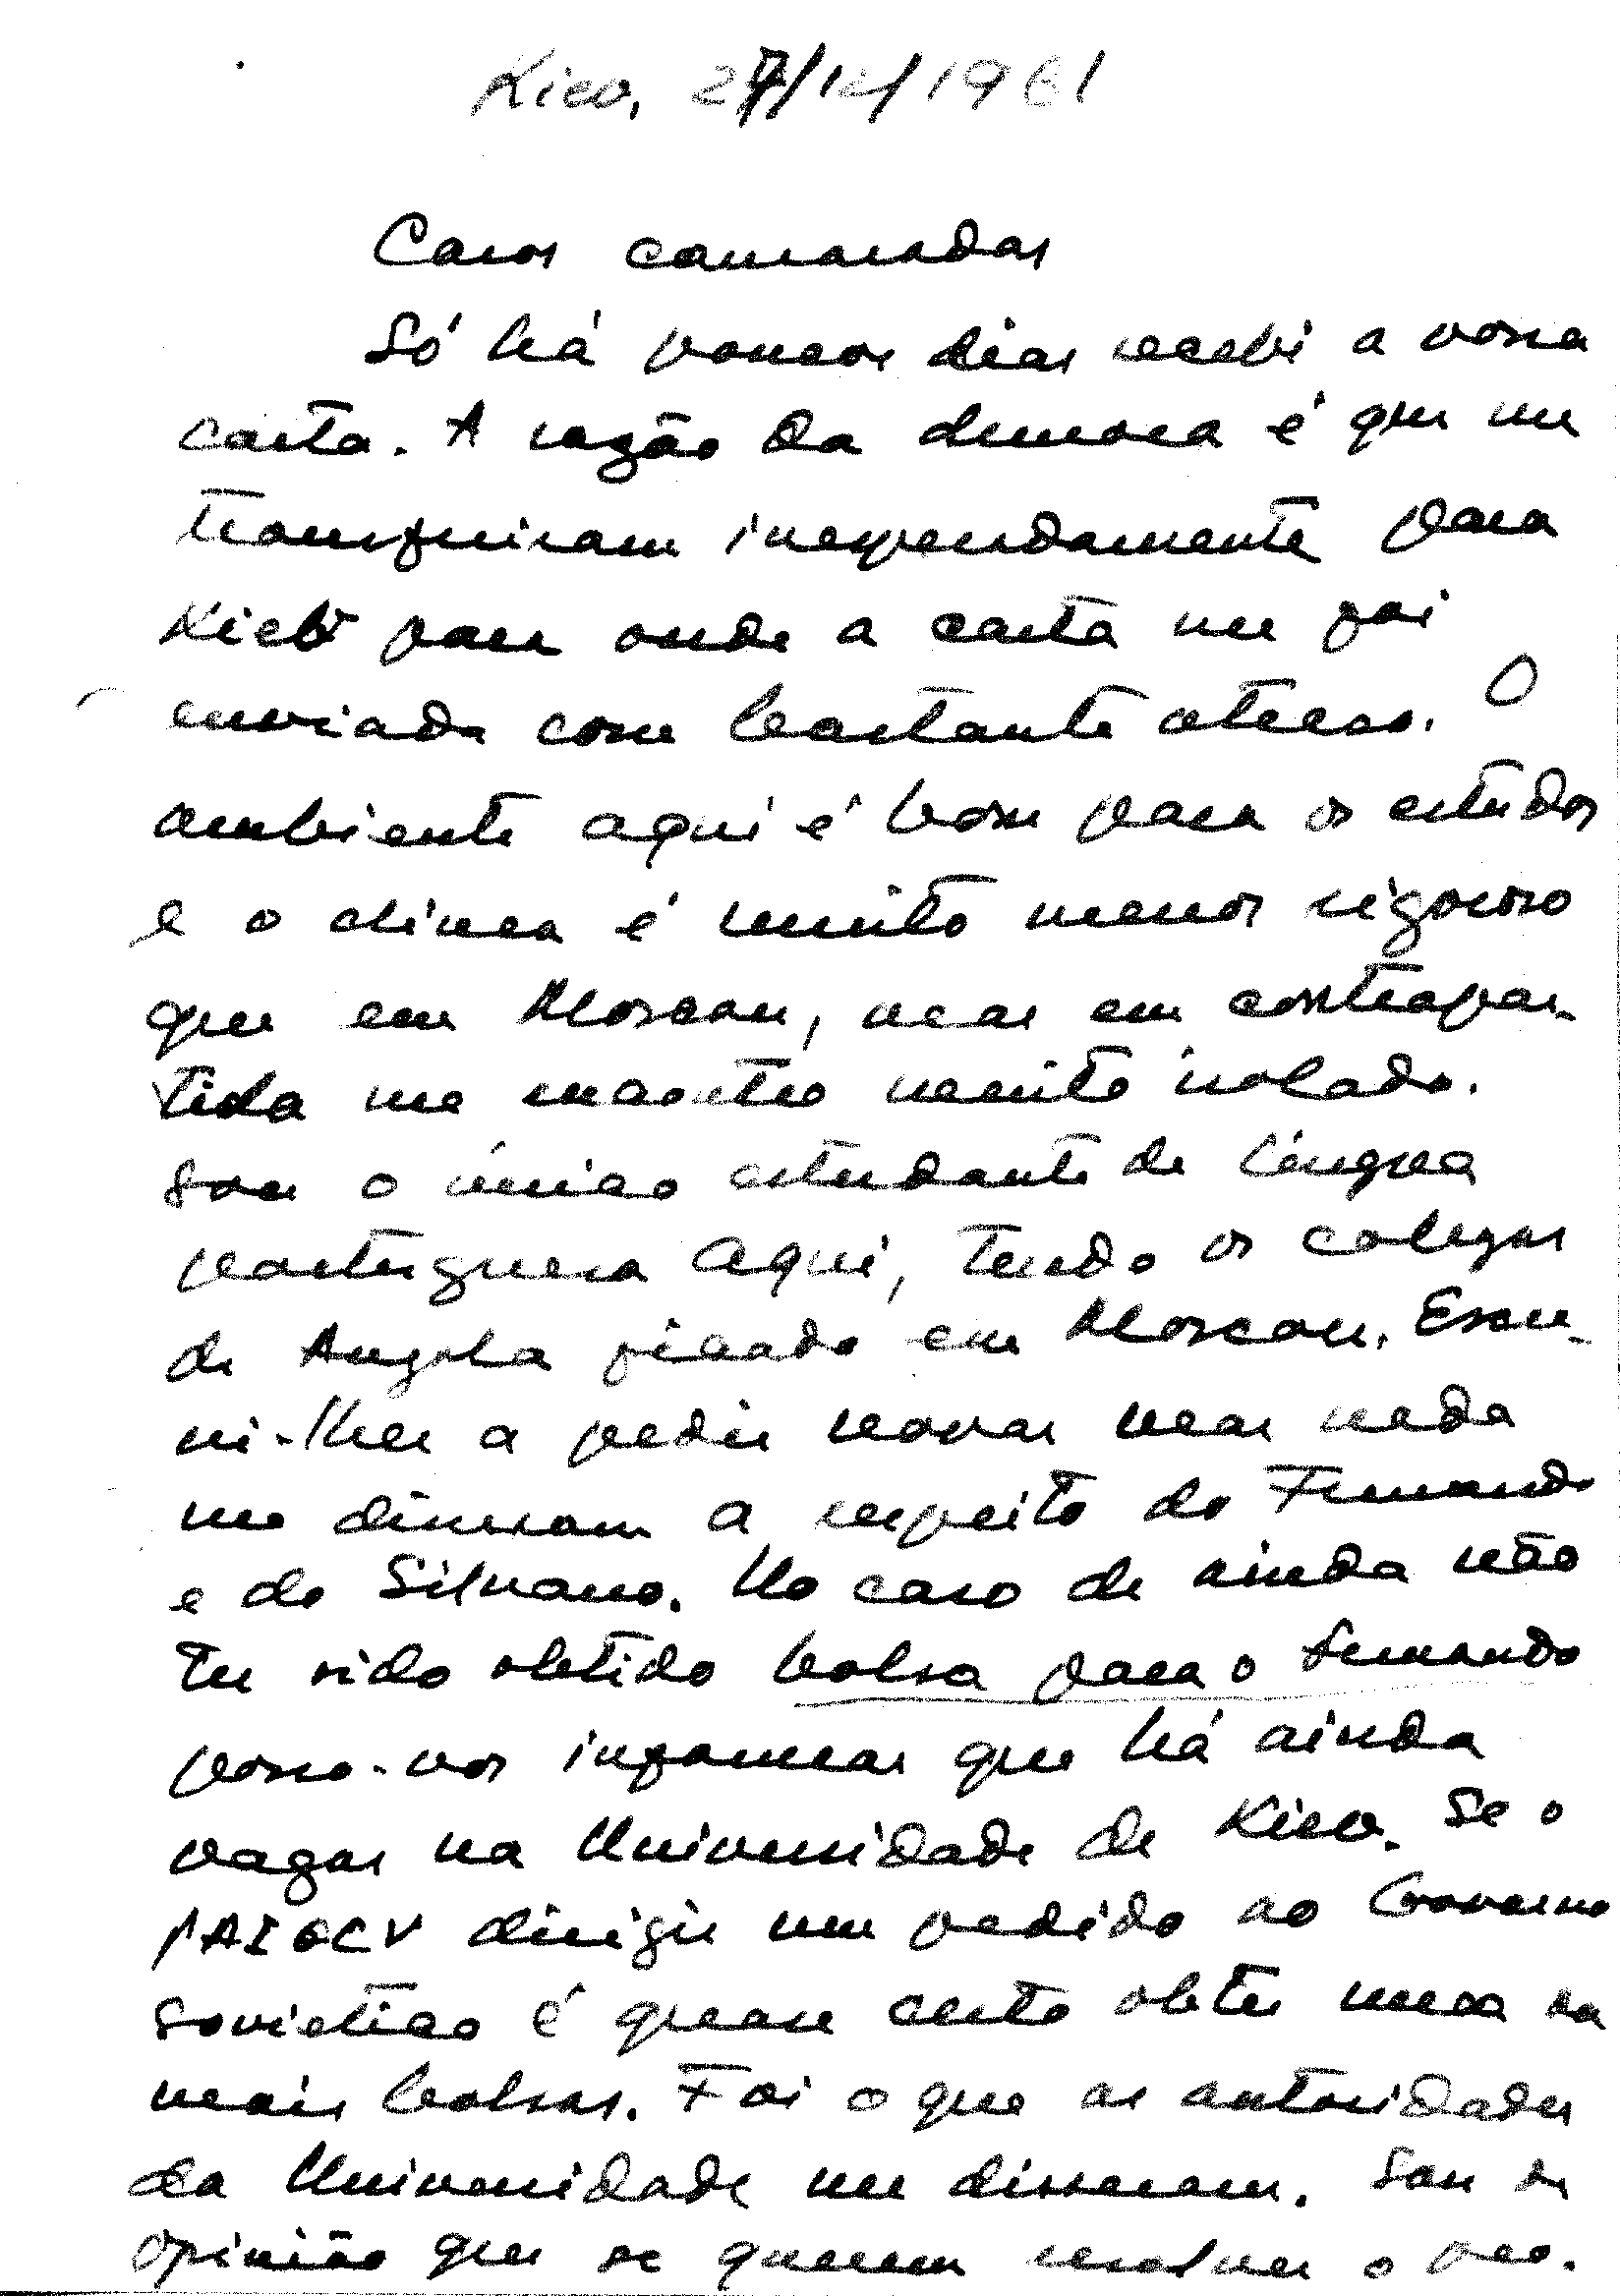 Kiev, 27/12/1961
Caros camaradas
Só há poucos dias recebi a vossa
carta. A razão da demora é que me
transferiram inesperadamente para
Kiev para onde a carta me foi
enviada com bastante atraso. O
ambiente aqui é bom para os estudos
e o clima é muito menos rigoroso
que em Moscou, mas em contrapar-
tida me encontro muito isolado.
Sou o único estudante de língua
portuguesa aqui, tendo os colegas
de Angola ficado em Moscou. Escre-
vi-lhes a pedir novas mas nada
me disseram a respeito do Fernando
e do Silvano. No caso de ainda não
ter sido obtido bolsa para o Fernando
posso-vos informar que há ainda
vagas na Universidade de Kiev. Se o
PAIGCV dirigir um pedido ao Governo
Soviético é quase certo obter uma ou
mais bolsas. Foi o que as autoridades
da Universidade me disseram. Sou de
opinião que se querem resolver o pro.